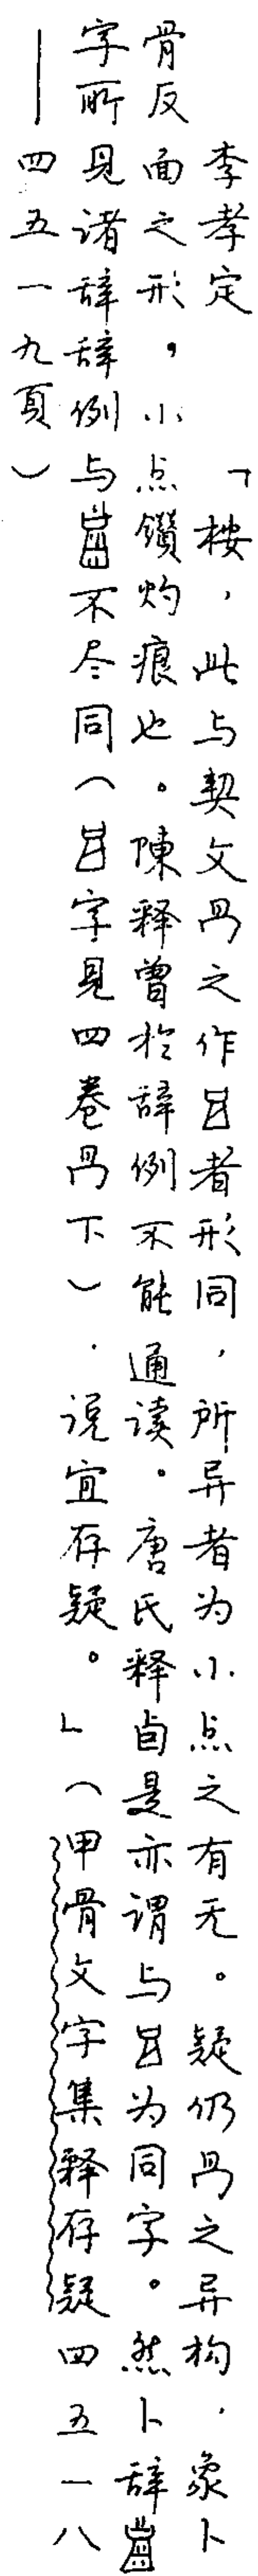 李孝定 「桉，此与契文冎之作者形同，所异者为小点之有无。疑仍冎之异构，象卜
骨反面之形，小点钻灼痕也。陳释曾於辞例不能通读。唐氏释卣是亦谓与为同字。然卜辞
字所見诸辞辞例与不尽同（字見四卷冎下）．说宜存疑。」（甲骨文字集释存疑四五一八
——四五一九頁）